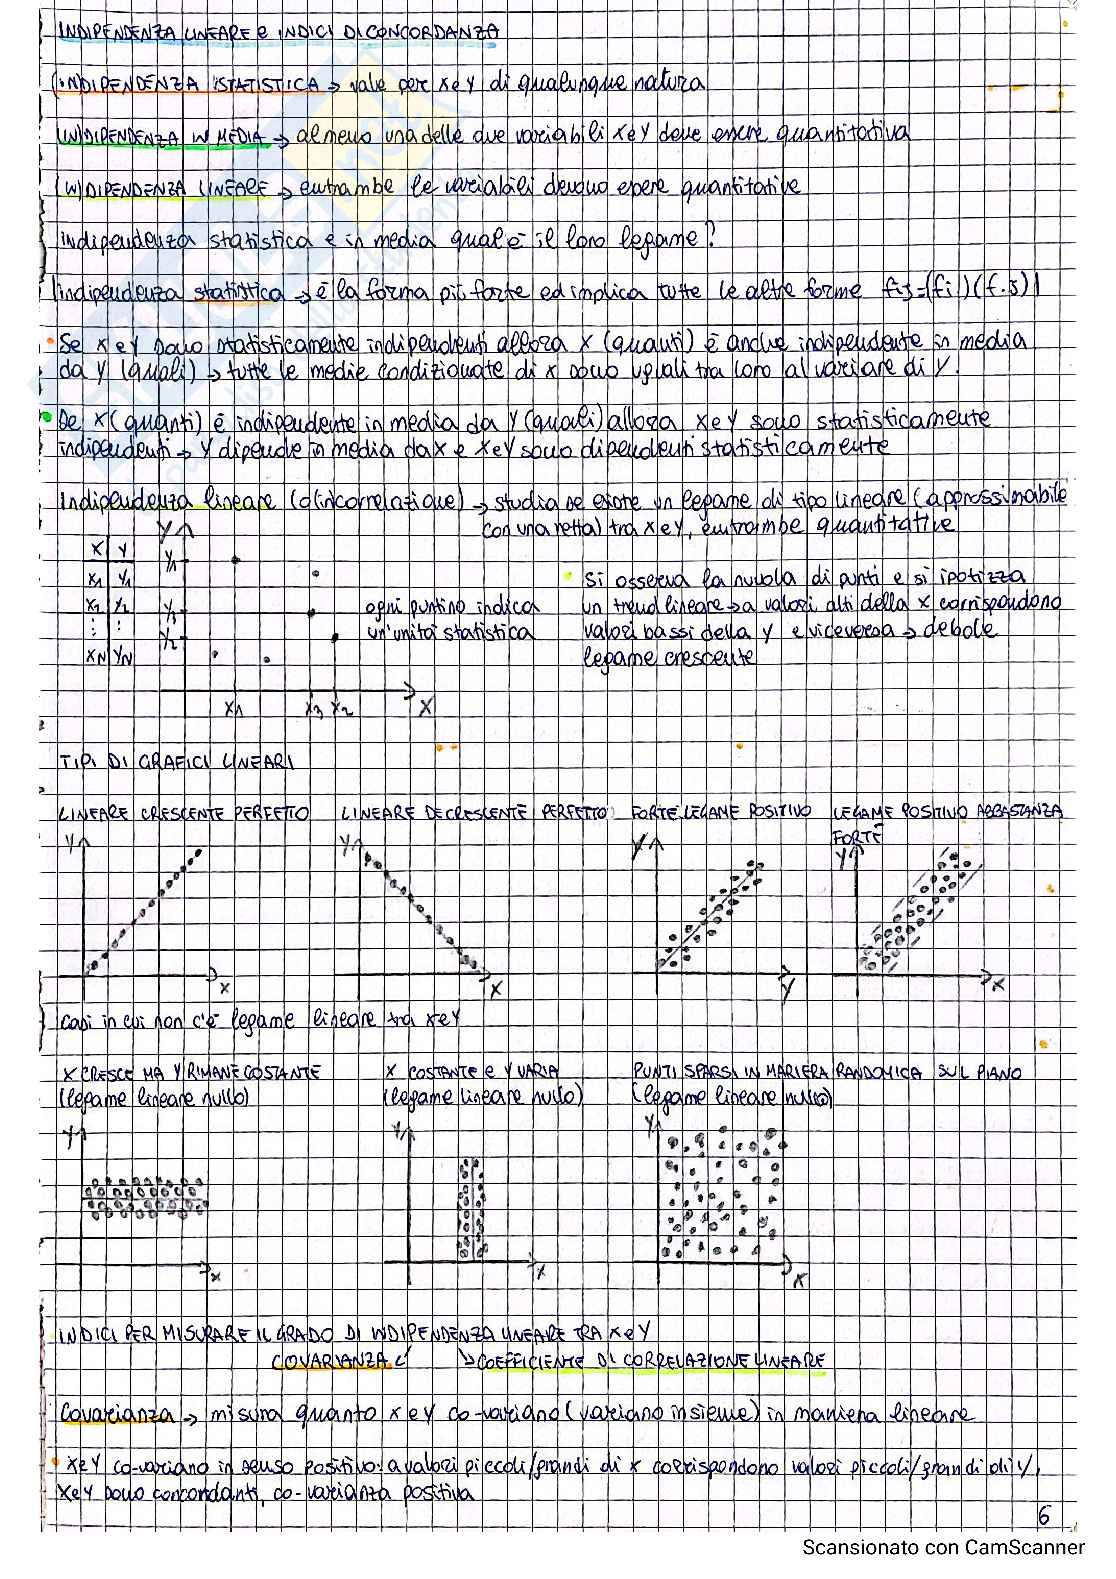 INDIPENDENZA LINEARE e INDICI DI CONCORDANZA
(IN)DIPENDENZA STATISTICA → vale per X e Y di qualunque natura
(IN)DIPENDENZA IN MEDIA → almeno una delle due variabili X e Y deve essere quantitativa
(IN)DIPENDENZA LINEARE → entrambe le variabili devono essere quantitative
indipendenza statistica e in media qual è il loro legame?
indipendenza statistica → è la forma più forte ed implica tutte le altre forme fij=(fi.)(f.j)
• Se X e Y sono statisticamente indipendenti allora X (quanti) è anche indipendente in media
da Y (quali) → tutte le medie condizionate di X sono uguali tra loro al variare di Y.
• Se X (quanti) è indipendente in media da Y (quali) allora X e Y sono statisticamente
indipendenti → Y dipende in media da X e X e Y sono dipendenti statisticamente
Indipendenza lineare (o incorrelazione) → studia se esiste un legame di tipo lineare (approssimabile
con una retta) tra X e Y, entrambe quantitative
X Y
X1 Y1
X2 Y2
⋮ ⋮
XN YN
Y
Y1
Y3
Y2
X1 X3 X2 X
ogni puntino indica
un'unità statistica
• Si osserva la nuvola di punti e si ipotizza
un trend lineare → a valori alti della X corrispondono
valori bassi della Y e viceversa → debole
legame crescente
TIPI DI GRAFICI LINEARI
LINEARE CRESCENTE PERFETTO LINEARE DECRESCENTE PERFETTO FORTE LEGAME POSITIVO LEGAME POSITIVO ABBASTANZA
FORTE
Y Y Y Y
X X Y X
Casi in cui non c'è legame lineare tra X e Y
X CRESCE MA Y RIMANE COSTANTE X COSTANTE e Y VARIA PUNTI SPARSI IN MARIERA RANDOMICA SUL PIANO
(legame lineare nullo) (legame lineare nullo) (legame lineare nullo)
Y Y Y
X X X
INDICI PER MISURARE IL GRADO DI INDIPENDENZA LINEARE TRA X e Y
COVARIANZA ↙ ↘ COEFFICIENTE DI CORRELAZIONE LINEARE
Covarianza → misura quanto X e Y co-variano (variano insieme) in maniera lineare
• X e Y co-variano in senso positivo: a valori piccoli/grandi di X corrispondono valori piccoli/grandi di Y,
X e Y sono concordanti, co-varianza positiva
6
Scansionato con CamScanner